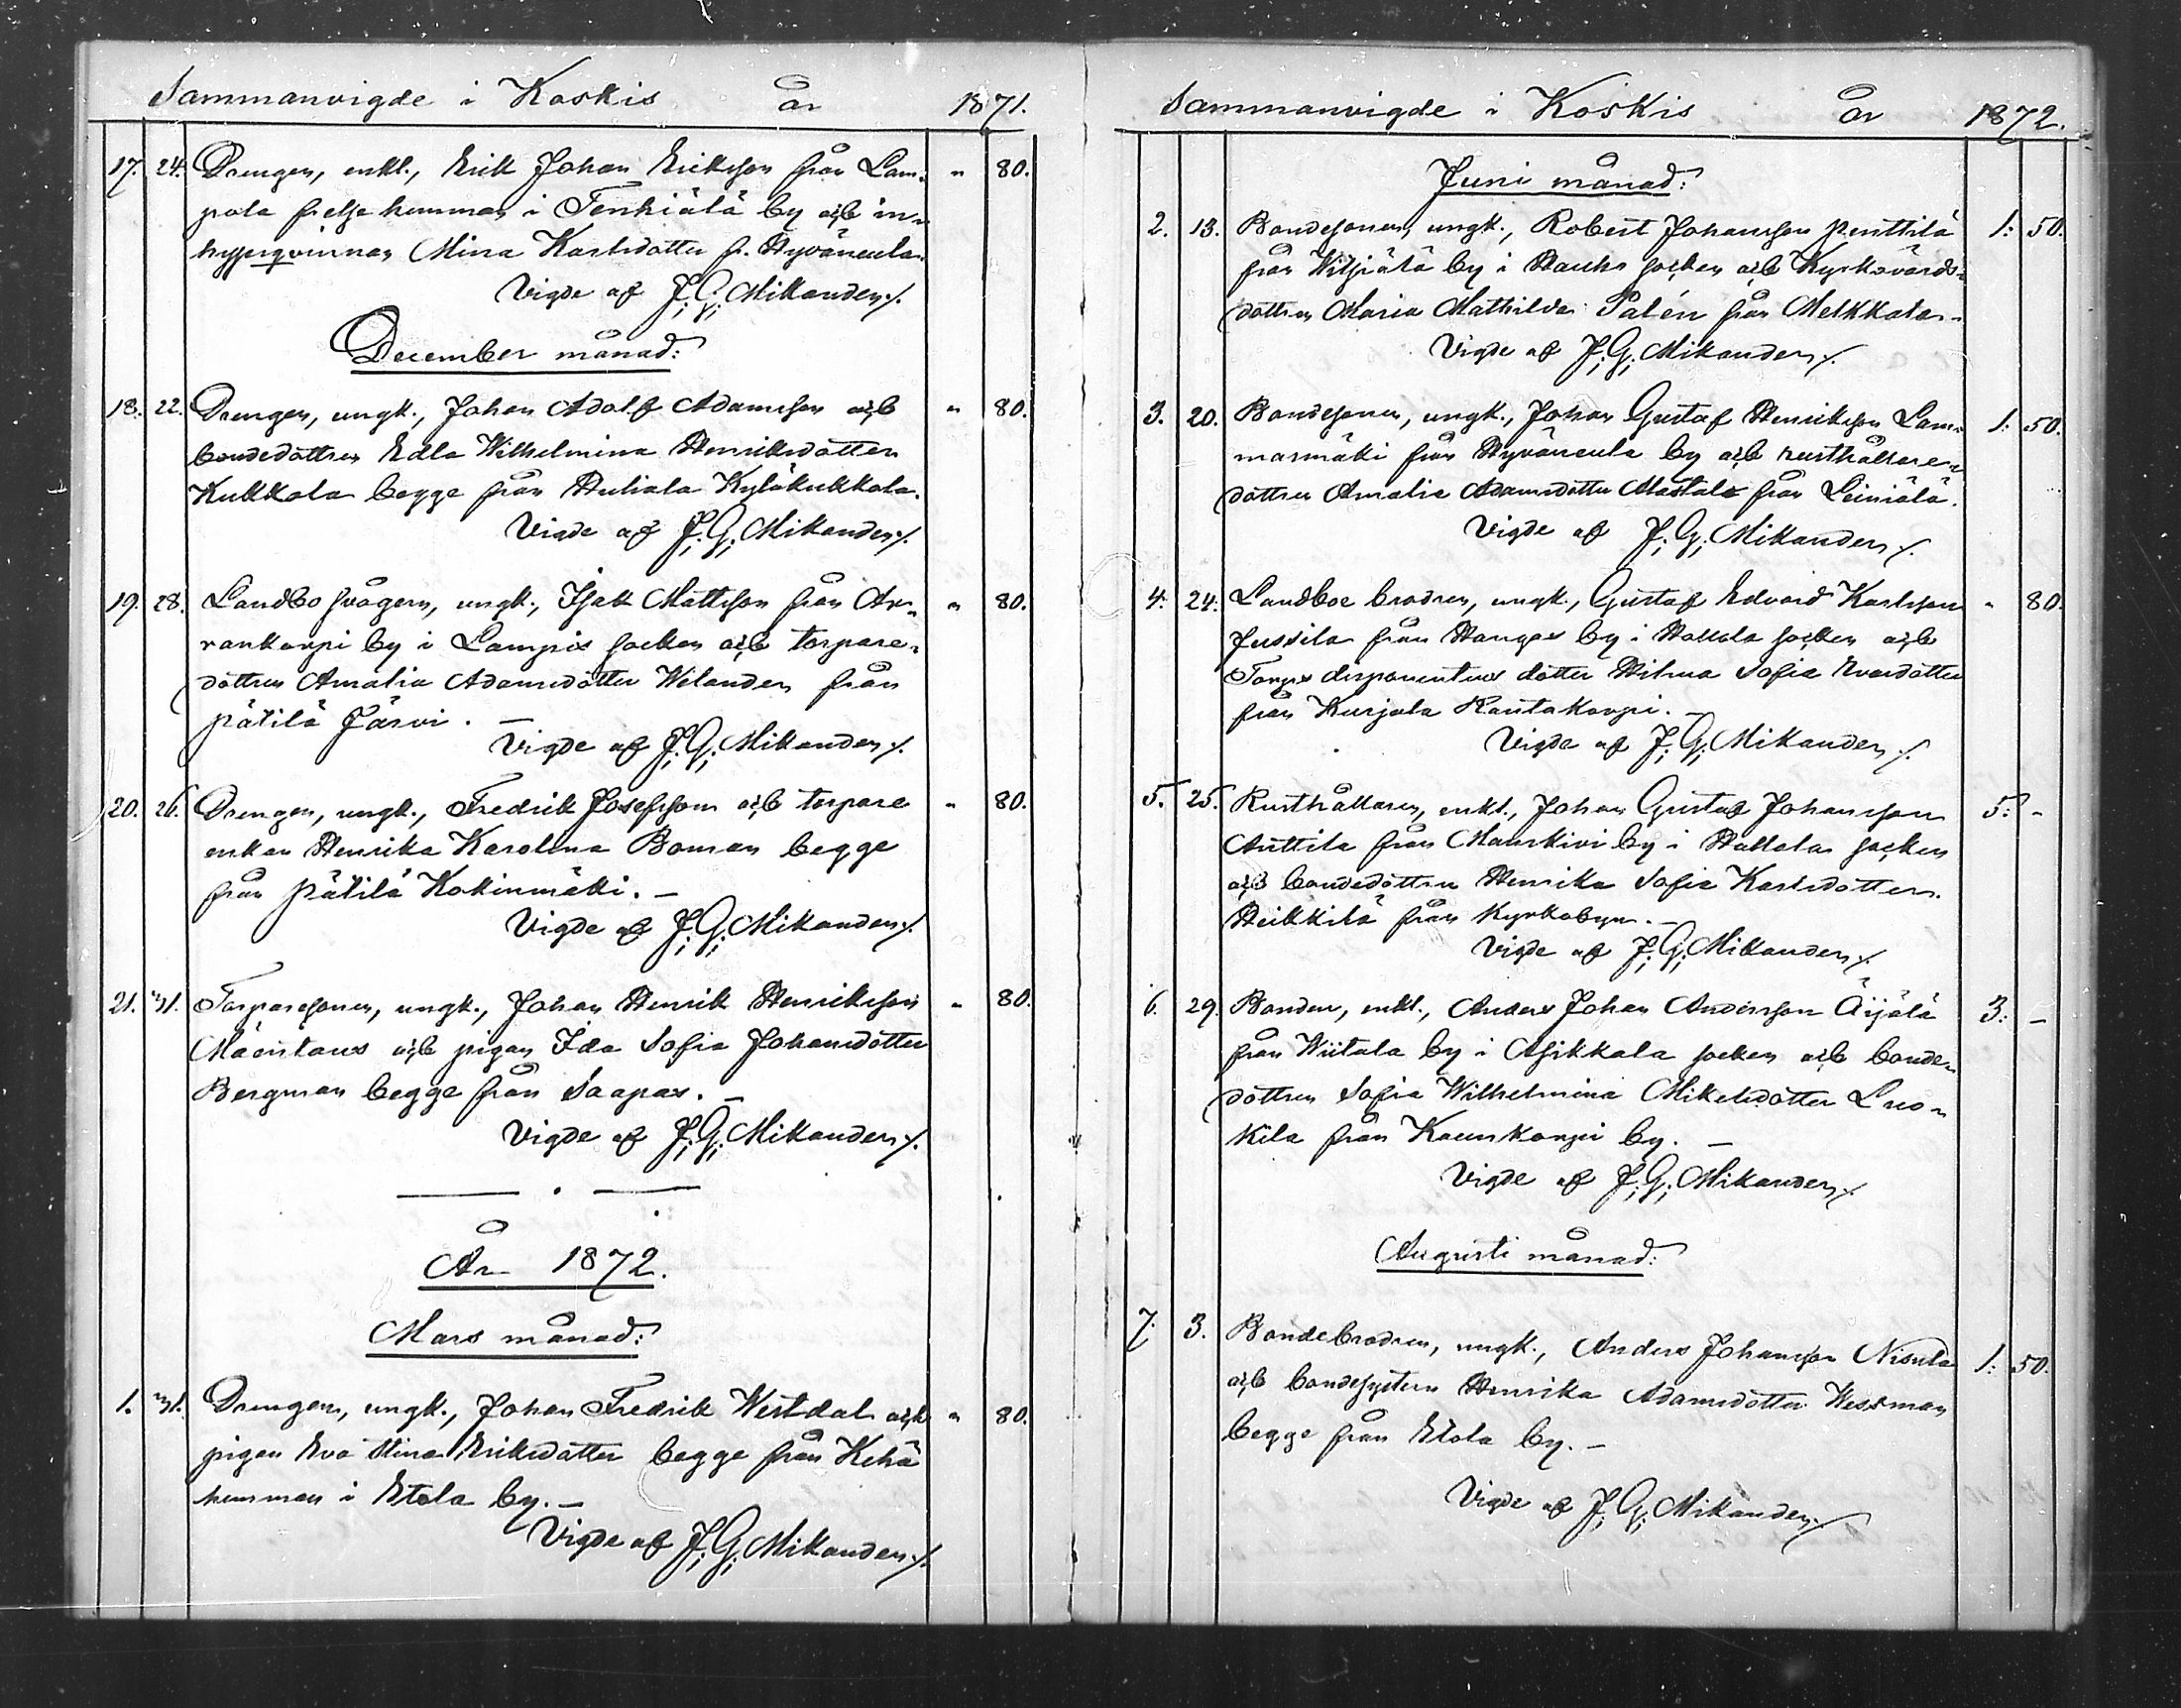 Sammanvigde i Koskis år 1871.
17. 24. Drengen, enkl., Erik Johan Eriksson från Lam- " 80.
pola frelsehemman i Tenhiälä by och in-
hysesqvinnan Mina Karlsdotter fr. Hyväneula.
Vigde af J. G. Mikander./.
December månad:
18. 22. Drengen, ungk., Johan Adolf Adamsson och " 80.
bondedottren Edla Wilhelmina Henriksdotter
Kukkola begge från Huljala Kyläkukkola.
Vigde af J. G. Mikander./.
19. 28. Landbosvågern, ungk., Isak Mattsson från Ar- " 80.
rankorpi by i Lampis socken och torpare-
dottren Amalia Adamsdotter Welander från
Pätilä Järvi. —
Vigde af J. G. Mikander./.
20. 26. Drengen, ungk., Fredrik Josefsson och torpare " 80.
enkan Henrika Karolina Boman begge
från Pätilä Kokinmäki. —
Vigde af J. G. Mikander./.
21. "31. Torparesonen, ungk., Johan Henrik Henriksson " 80.
Mäentaus och pigan Ida Sofia Johansdotter
Bergman begge från Saapas. —
Vigde af J. G. Mikander./.
År 1872.
Mars månad:
1. "31. Drengen, ungk., Johan Fredrik Westdal och " 80.
pigan Eva Stina Eriksdotter begge från Kehä
hemman i Etola by. —
Vigde af J. G. Mikander./.
Sammanvigde i Koskis år 1872.
Juni månad:
2. 13. Bondesonen, ungk., Robert Johansson Penttilä 1: 50.
från Witsiälä by i Hauho socken och Kyrkovärds-
dottren Maria Mathilda Palén från Melkkola. -
Vigde af J. G. Mikander./.
3. 20. Bondesonen, ungk., Johan Gustaf Henriksson Lam- 1: 50.
masmäki från Hyväneula by och rusthållare-
dottren Amalia Adamsdotter Mastala från Leiniälä.
Vigde af J. G. Mikander./.
4. 24. Landboe brodren, ungk., Gustaf Edvard Karlsson " 80.
Jussila från Hangas by i Hollola socken och
Torps disponentens dotter Hilma Sofia Evardotter
från Kurjala Rautakorpi. —
Vigde af J. G. Mikander./.
5. 25. Rusthållaren, enkl., Johan Gustaf Johansson 5: -
Anttila från Manskivi by i Hollola socken
och bondedottren Henrika Sofia Karlsdotter
Heikkilä från Kyrkobyn. —
Vigde af J. G. Mikander./.
6. 29. Bonden, enkl., Anders Johan Andersson Äijälä 3: —
från Wiitala by i Asikkala socken och bonde-
dottren Sofia Wilhelmina Mikelsdotter Luo-
kila från Kaunkorpi by. —
Vigde af J. G. Mikander./.
Augusti månad:
7. 3. Bondebrodren, ungk., Anders Johansson Nisula 1: 50.
och bondesystern Henrika Adamsdotter Wessman
begge från Etola by. —
Vigde af J. G. Mikander./.